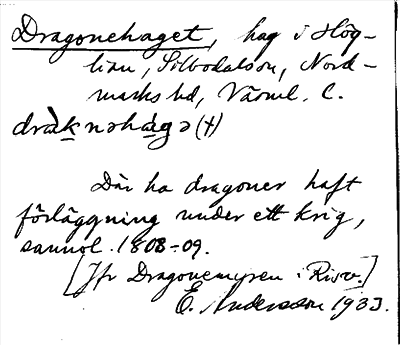 Dragonehaget, hag i Hög-
lian, Silbodalssn, Nord-
marks hd, Värml. l.
dràk nəhàgə (+)
Där ha dragoner haft
förläggning under ett krig,
sannol. 1808-09.
[Jfr Dragonemyren i Risv.]
E. Andersson 1933.